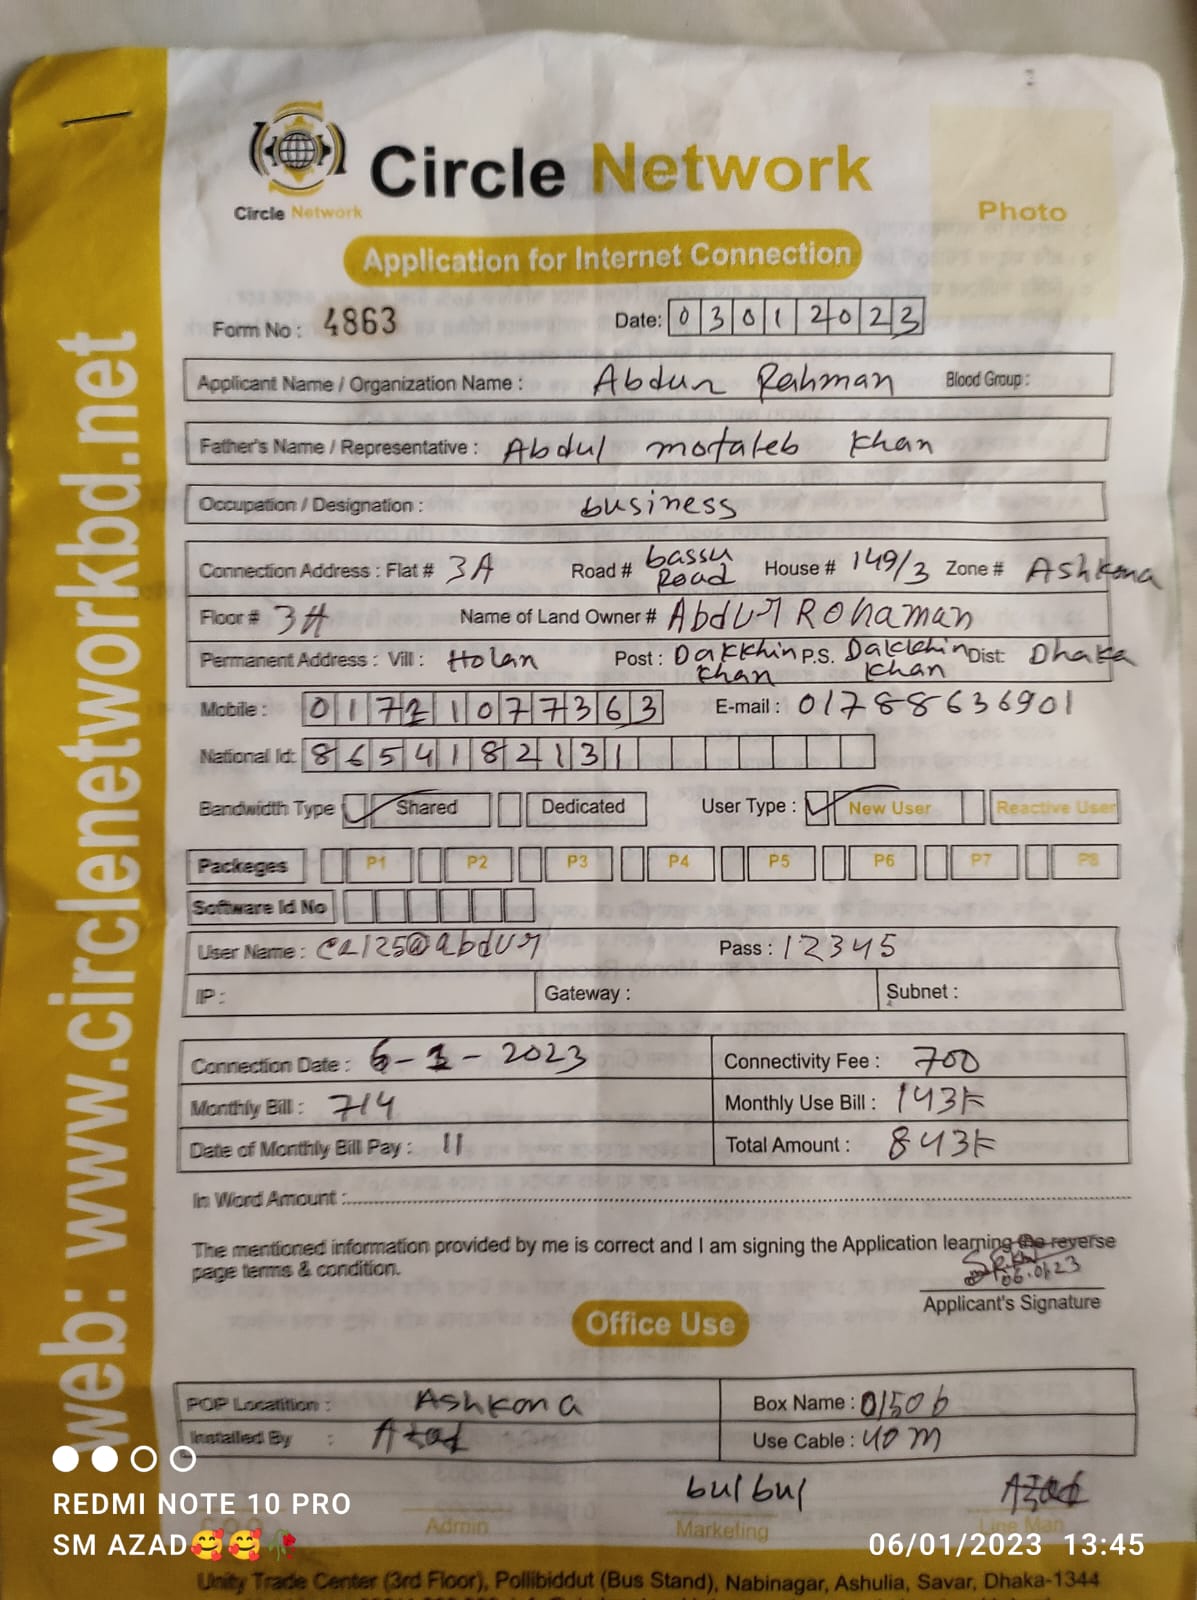 Circle Network
Circle Network
Photo
Application for Internet Connection
Form No : 4863 Date: 03012023
Applicant Name / Organization Name : Abdur Rahman Blood Group :
Father's Name / Representative : Abdul motaleb Khan
Occupation / Designation : business
Connection Address : Flat # 3A Road # bassu Road House # 149/3 Zone # Ashkona
Floor # 3A Name of Land Owner # Abdur Rohaman
Permanent Address : Vill : Holan Post : Dakkhin khan P.S. Dakkhin khan Dist: Dhaka
Mobile : 01721077363 E-mail : 01788636901
National Id: 8654182131
Bandwidth Type Shared Dedicated User Type : New User Reactive User
Packeges P1 P2 P3 P4 P5 P6 P7 P8
Software Id No
User Name : Pass : 12345
IP : Gateway : Subnet :
Connection Date : 6-1-2023 Connectivity Fee : 700
Monthly Bill : 714 Monthly Use Bill : 143৳
Date of Monthly Bill Pay : 11 Total Amount : 843৳
In Word Amount :
The mentioned information provided by me is correct and I am signing the Application learning the reverse
page terms & condition.
06.01.23
Applicant's Signature
Office Use
POP Locatition : Ashkona Box Name : 0150b
Installed By : Azad Use Cable : 40 m
bulbul Azad
Admin Marketing Line Man
Unity Trade Center (3rd Floor), Pollibiddut (Bus Stand), Nabinagar, Ashulia, Savar, Dhaka-1344
web: www.circlenetworkbd.net
REDMI NOTE 10 PRO
SM AZAD🥰🥰🥀 06/01/2023 13:45